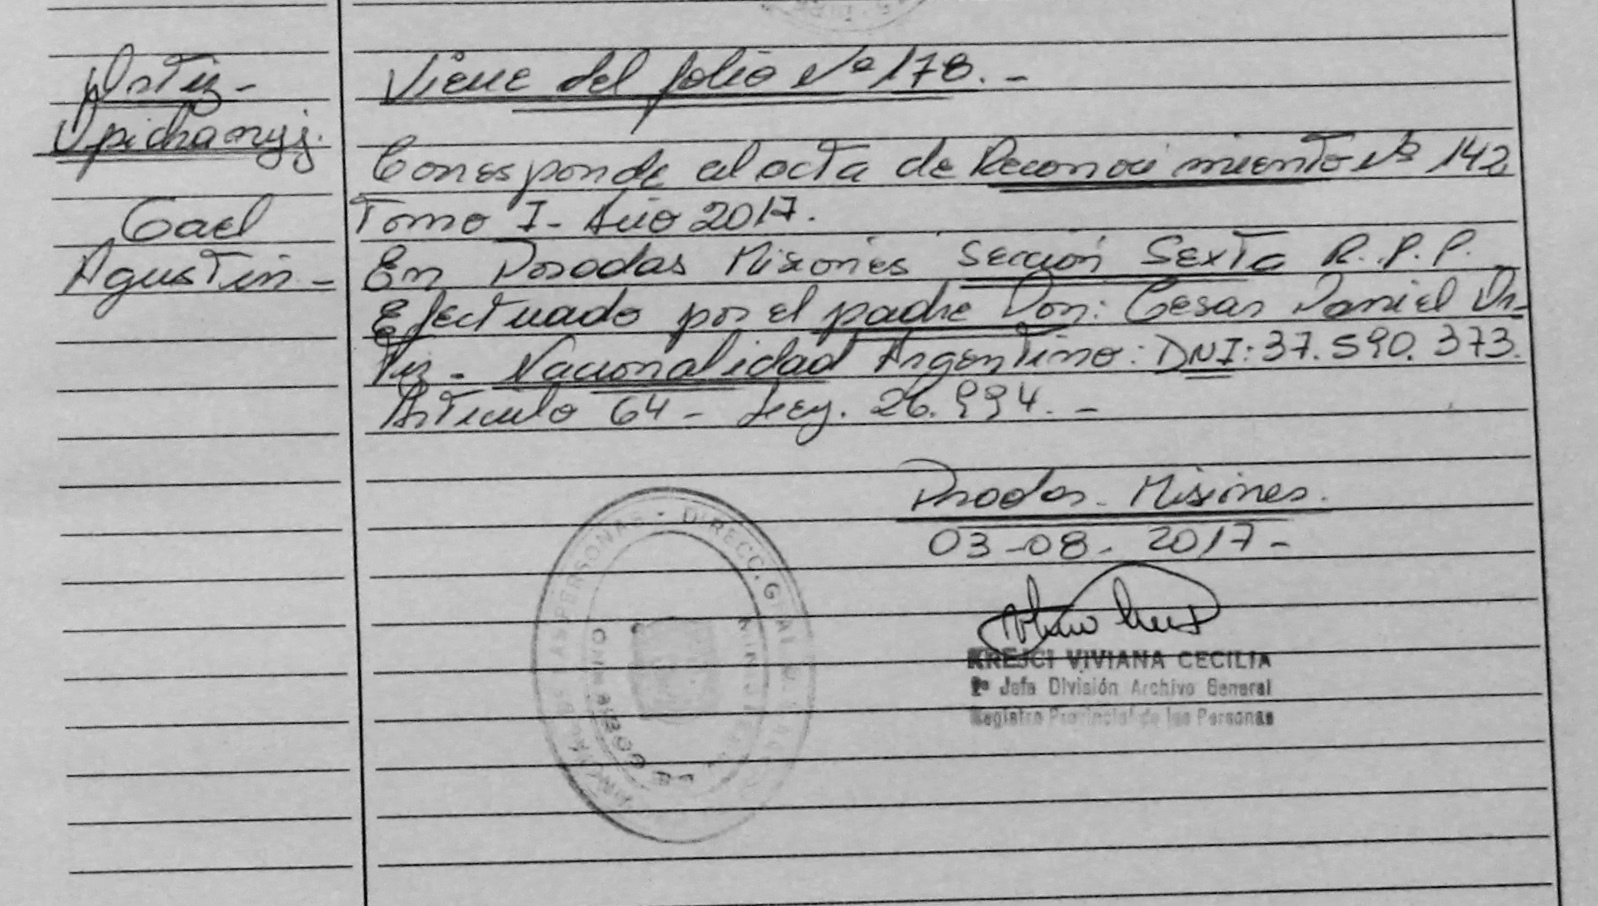 Ortiz -
Viene del folio Nº 178. -
Corresponde al acta de Reconocimiento Nº 142
Gael
Tomo I - Año 2017.
Agustin -
En Posadas Misiones Sección Sexta R. P. P.
Efectuado por el padre Don: Cesar Daniel Or-
tiz - Nacionalidad Argentino: DNI: 37.590.373.
Articulo 64 - Ley. 26.994. -
Posadas - Misiones.
03-08-2017-
KREJCI VIVIANA CECILIA
Jefa División Archivo General
Registro Provincial de las Personas
LAS PERSONAS - DIRECC. GRAL.